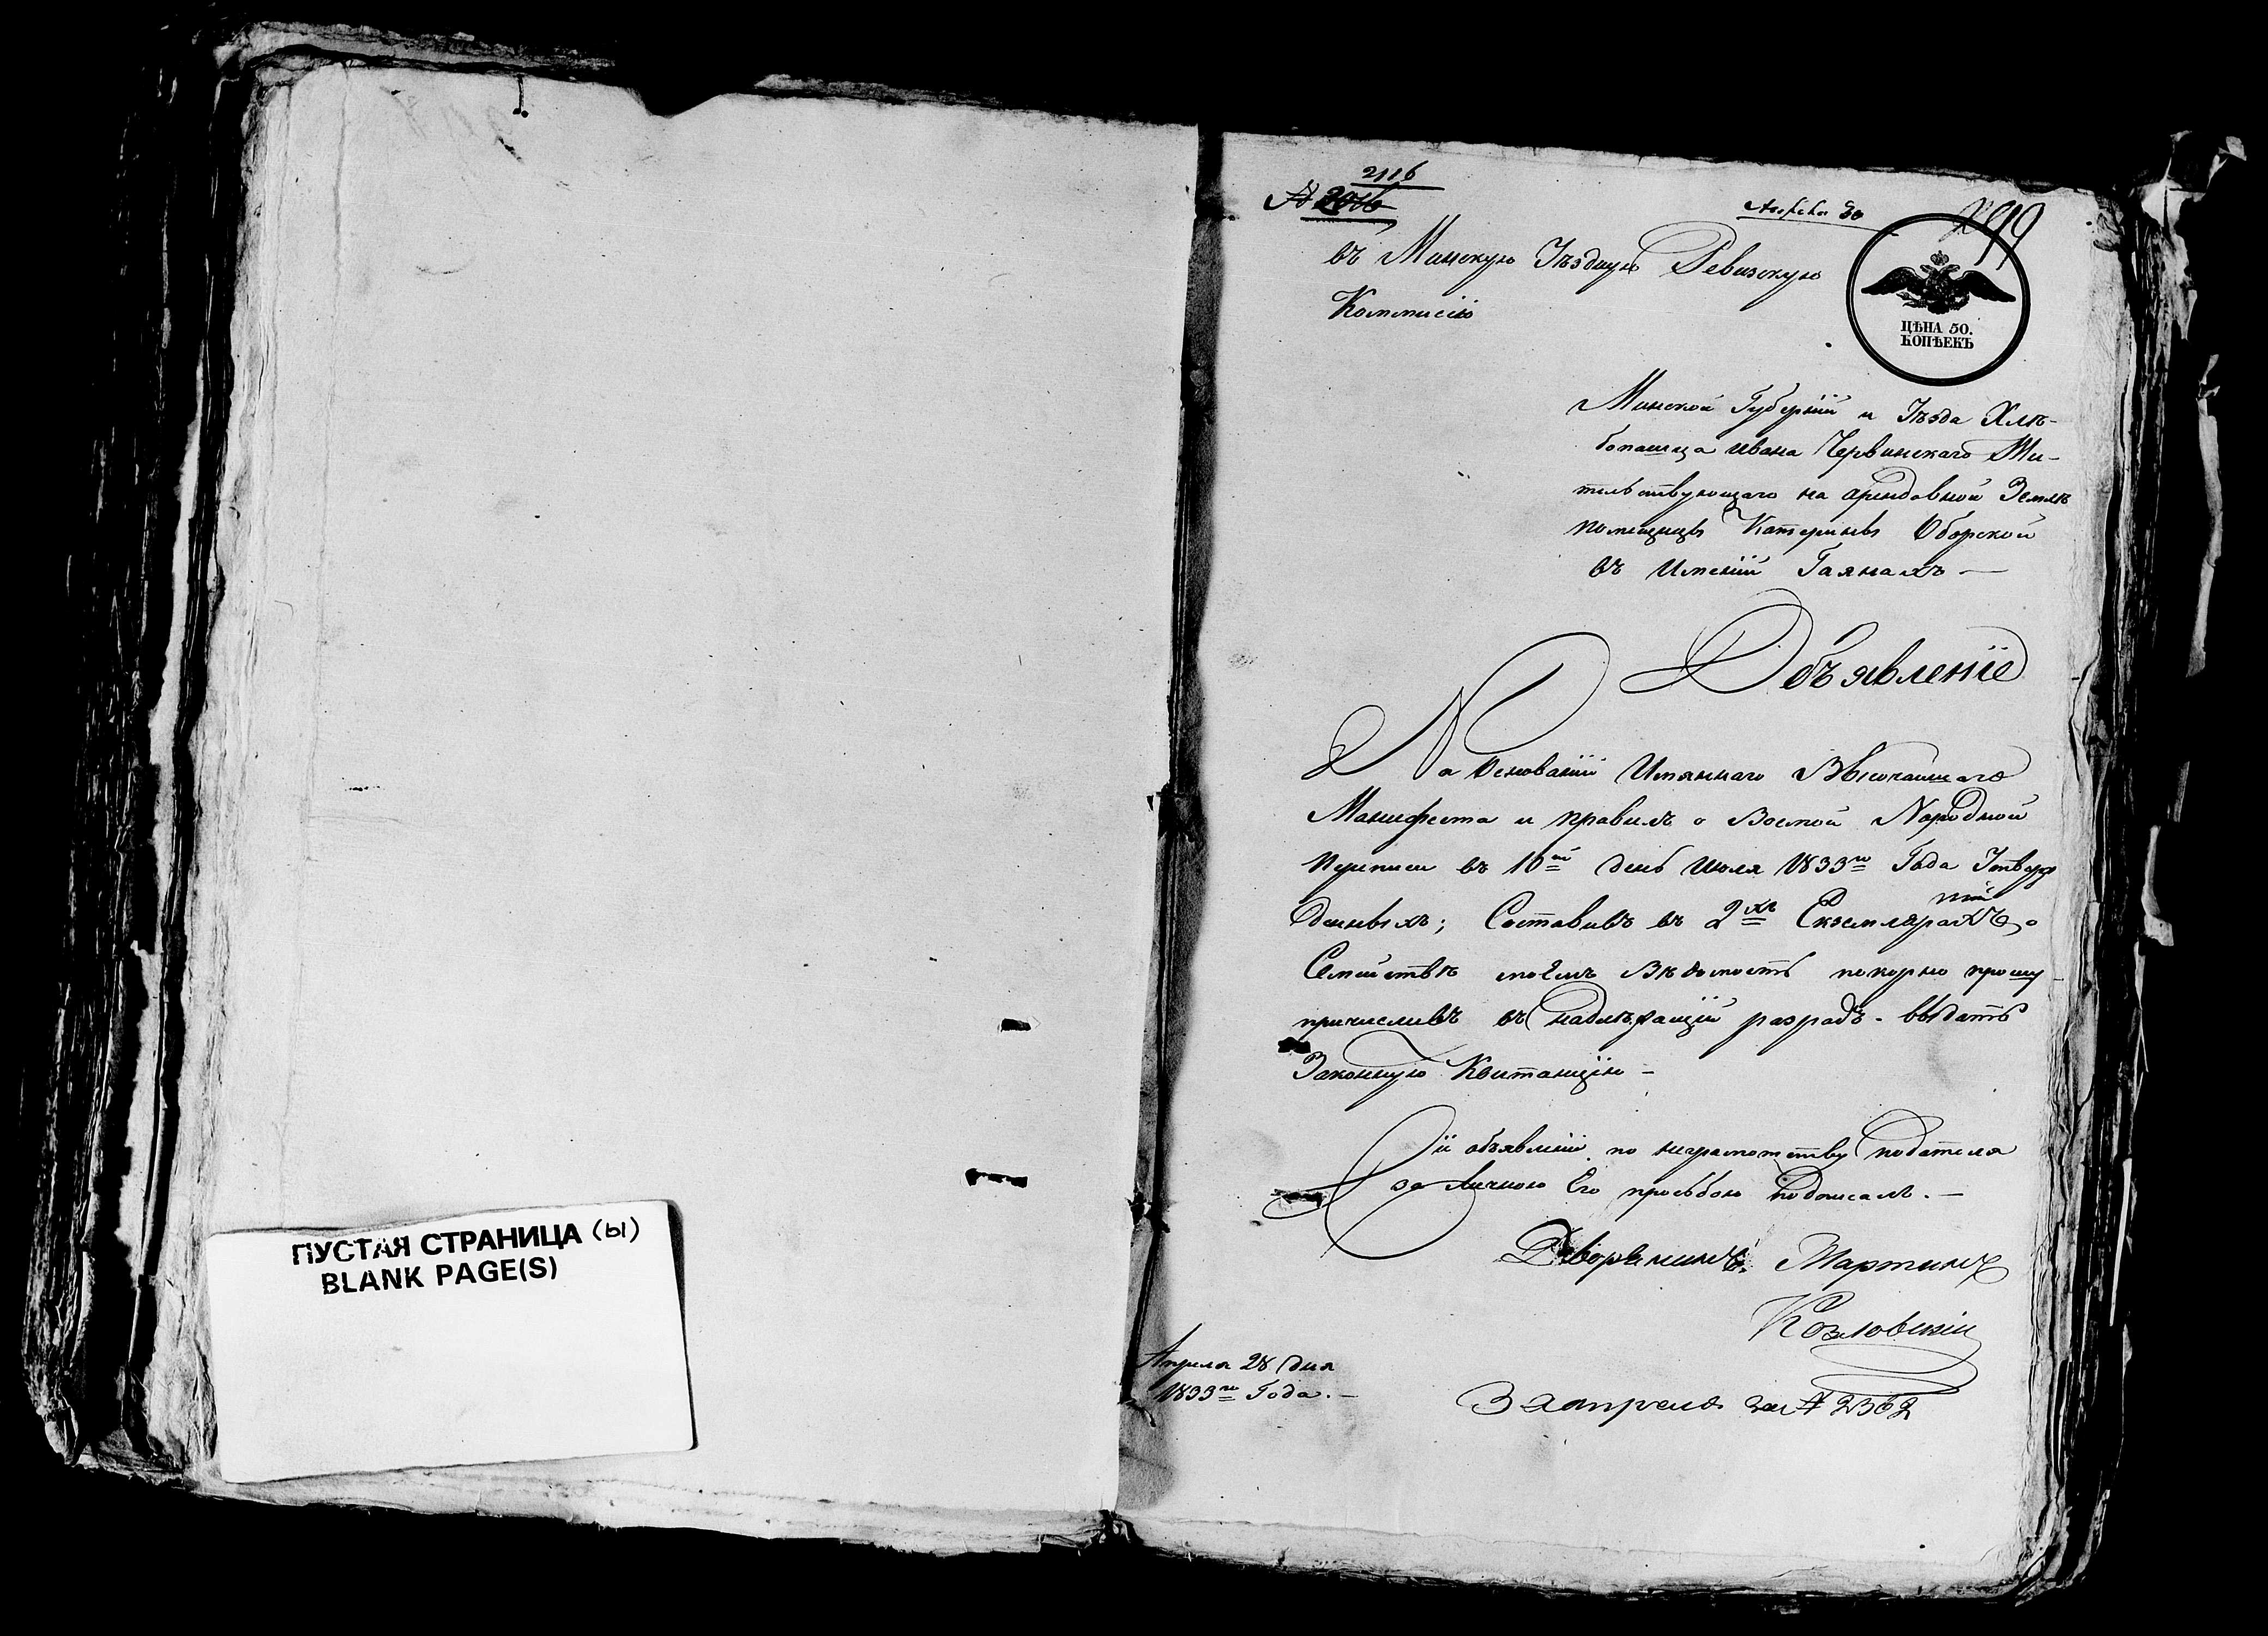 ПУСТАЯ СТРАНИЦА (ы)
BLANK PAGE(S)
2116
№ 2016
Апреля 30
въ Минскую Уѣздную Ревизскую
Коммисію
ЦѢНА 50.
КОПѢЕКЪ
Минской Губерніи и Уѣзда Хлѣ-
бопашца Ивана Червинскаго Жи-
тельствующаго на арендовной Землѣ
помещицы Катерины Оборской
въ Имѣніи Гаянахъ —
Объявленіе
На Основаніи Имяннаго Высочайшаго
Манифеста и правилъ о Восмой Народной
Переписи въ 16й день Июня 1833го Года Утверж
денныхъ; Составивъ въ 2хъ Екземплярахъ, о
Семействѣ моемъ Вѣдомость покорно прошу
причисливъ въ надлѣжащій разрядъ. выдать
Законную Квитанцію —
Сіи объявленіи по неграмотству подателя
за личною Его прозьбою подписалъ. —
Дворянинъ Мартинъ
Козловскій
Апреля 28 дня
1833го Года. —
3 апреля за № 2362